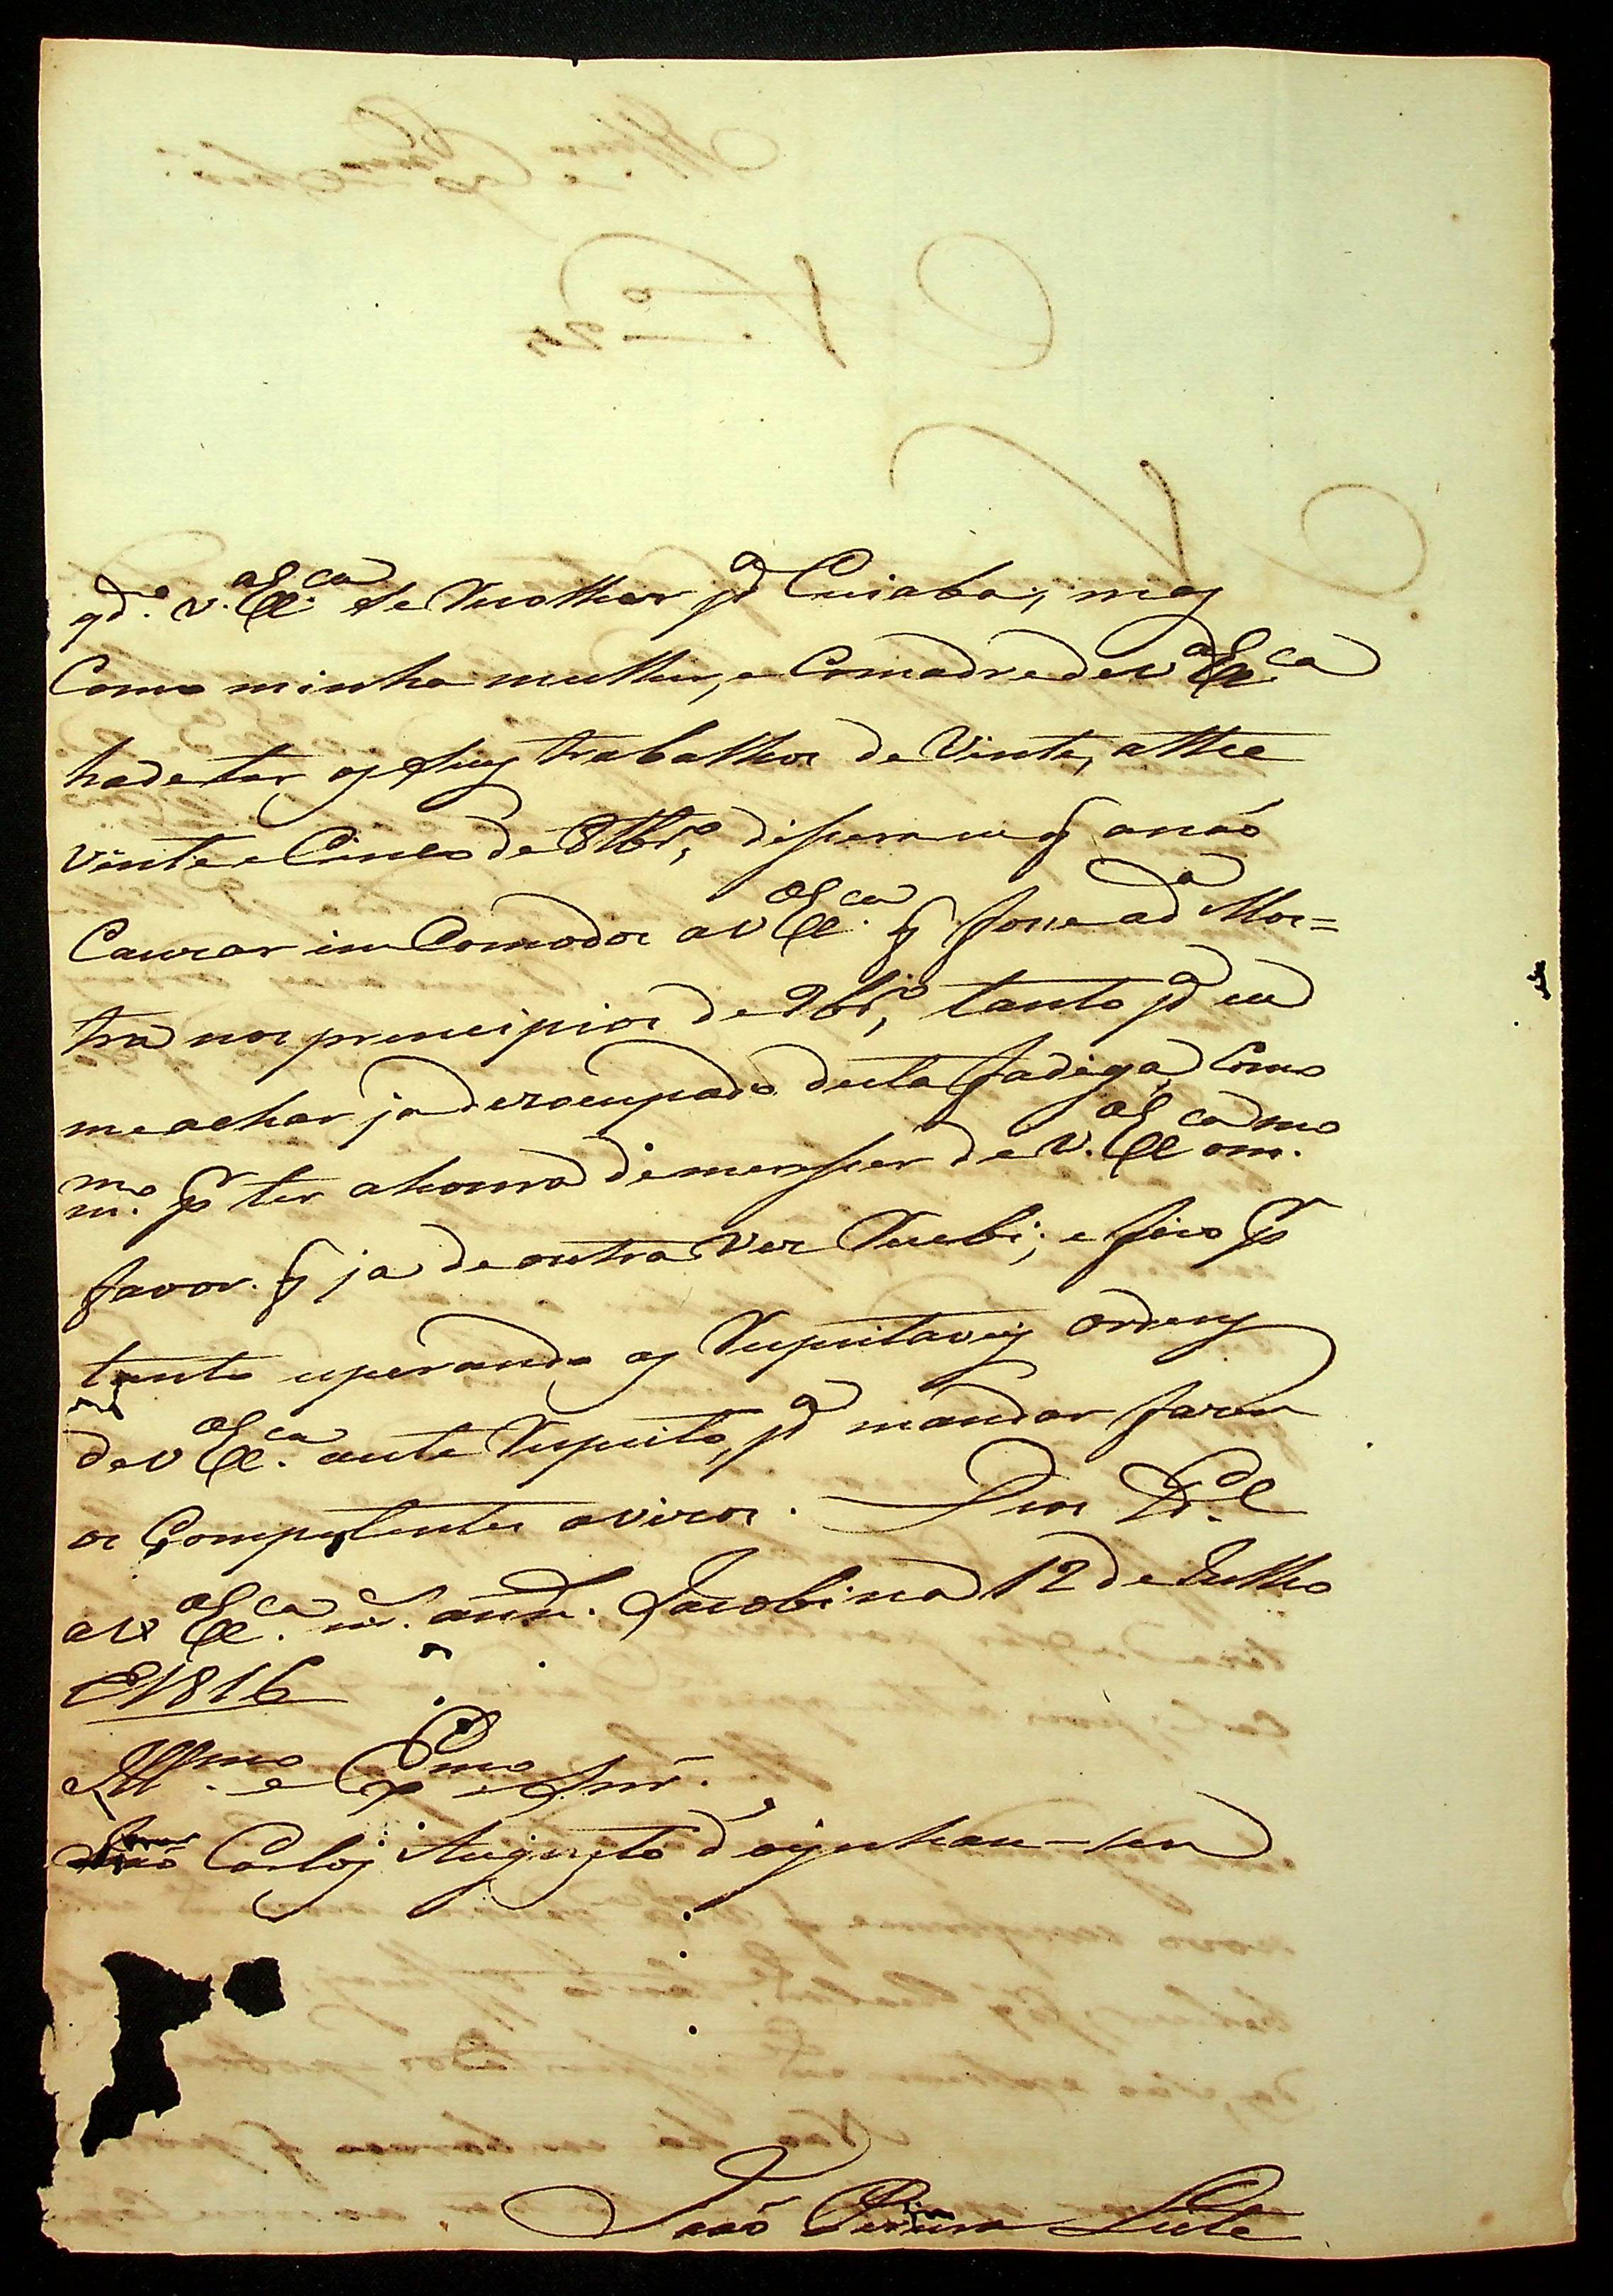 qd.º v. Ex.ca se recolher p.ª Cuiaba; mas
Como minha mulher, e Comadre de v Ex.ca
hade ter os seus trabalhos de Vinte, athe
vinte e Cinco de 8tbr.º, disera eu q anaõ
Cauzar in Comodos a v Ex.ca q fose ad Mos=
tra nos principios de 9br.º, tanto p.ª eu
me achar ja dezocupado desta fadiga, Como
m.mo p.r ter a honra de mereser de v. Ex.ca o m.mo
favor. q ja de outra vez Recebi; e fico p.r
tanto esperando as Respeitaveis ordens
de v Ex.ca a este Respeito, p.ª mandar fazer
os Competentes avizos. Deos G.de
a v Ex.ca m.s ann.s Jacobina 12 de Julho
E 1816
Ill.mo e Ex.mo Snr.
Joaõ Carlos Augusto d'oeynhau-sen
Joaõ Pereira Leite